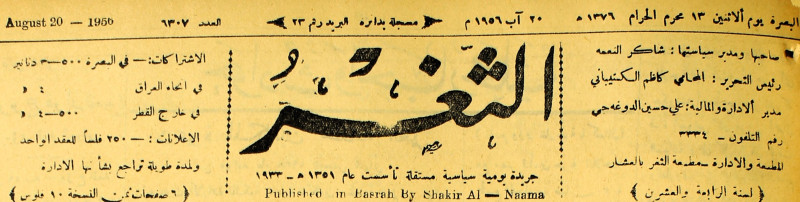 البصرة يوم الاثنين ١٣ محرم الحرام ١٣٧٦ هـ ٢٠ آب ١٩٥٦ م مسجلة بدائرة البريد رقم ٢٣ العدد ٦٣٠٧ August 20 — 1956
صاحبها ومدير سياستها: شاكر النعمه
رئيس التحرير: المحامي كاظم الكنيباني
مدير الادارة والمالية: علي حسين الدوغه جي
رقم التلفون - ٣٣٣٤
المطبعة والادارة - مطبعة الثغر بالعشار
﴿ لسنة الرابعة والعشرين ﴾
الثغر
جريدة يومية سياسية مستقلة تأسست عام ١٣٥١ هـ - ١٩٣٣
Published in Basrah By Shakir Al — Naama
الاشتراكات: - في البصرة ٥٠٠-٣ دنانير
في انحاء العراق ٤ د
في خارج القطر ٥٠٠-٤ د
الاعلانات: - ٢٥٠ فلساً للعقد الواحد
ولمدة طويلة تراجع بشأنها الادارة
﴿ ٦ صفحات ثمن النسخة ١٠ فلوس ﴾